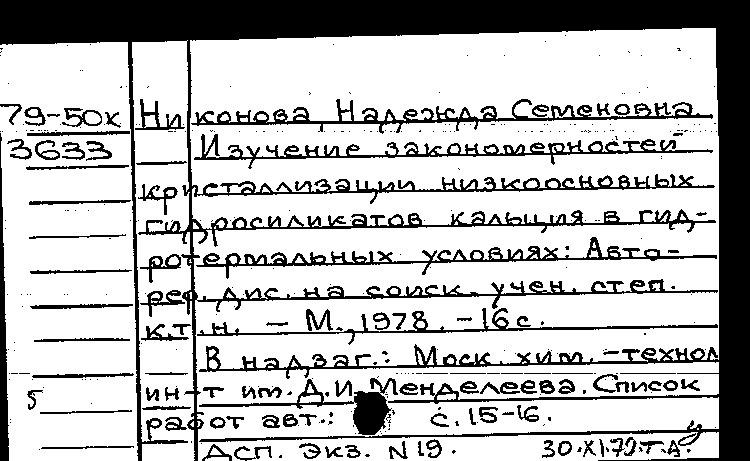 79-50к Никонова, Надежда Семеновна.
3633 Изучение закономерностей
кристаллизации низкоосновных
гидросиликатов кальция в гид-
ротермальных условиях: Авто-
реф. дис. на соиск. учен. степ.
к.т.н. - М., 1978. - 16 с.
В надзаг.: Моск. хим.-технол
5 ин-т им. Д.И. Менделеева. Список
работ авт.: с. 15-16.
ДСП. Экз. N 19. 30.XI.79.Т.А.
у